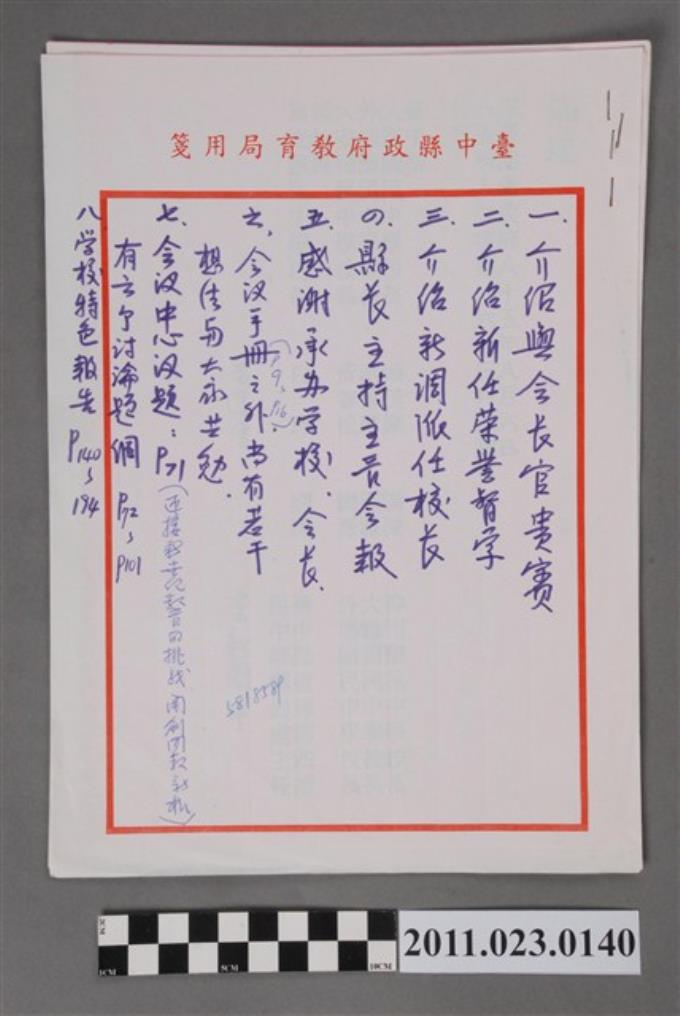 臺中縣政府教育局用箋
一、介紹與會長官貴賓
二、介紹新任榮譽督學
三、介绍新調派任校长
四、縣长主持主管会報
五、感谢承办学校、会长、
六、会议手冊之外、尚有若干
(P9、P16)
想法与大家共勉、
七、会议中心议題：P71
(迎接新世纪教育的挑战 開創国教新机)
有六个讨論題綱 P72~P101
八、学校特色報告 P140~194
5818589
2CM
1CM
5CM
10CM
2011.023.0140